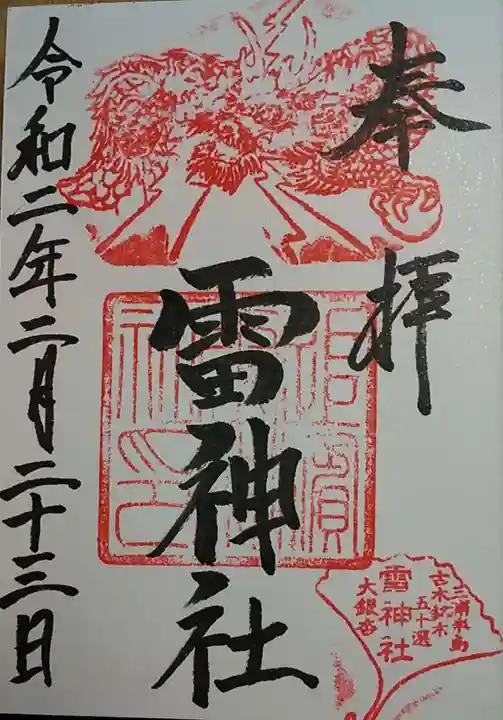 奉拝
雷神社
令和二年二月二十三日
三浦半島
古木名木
五十選
雷神社
大銀杏